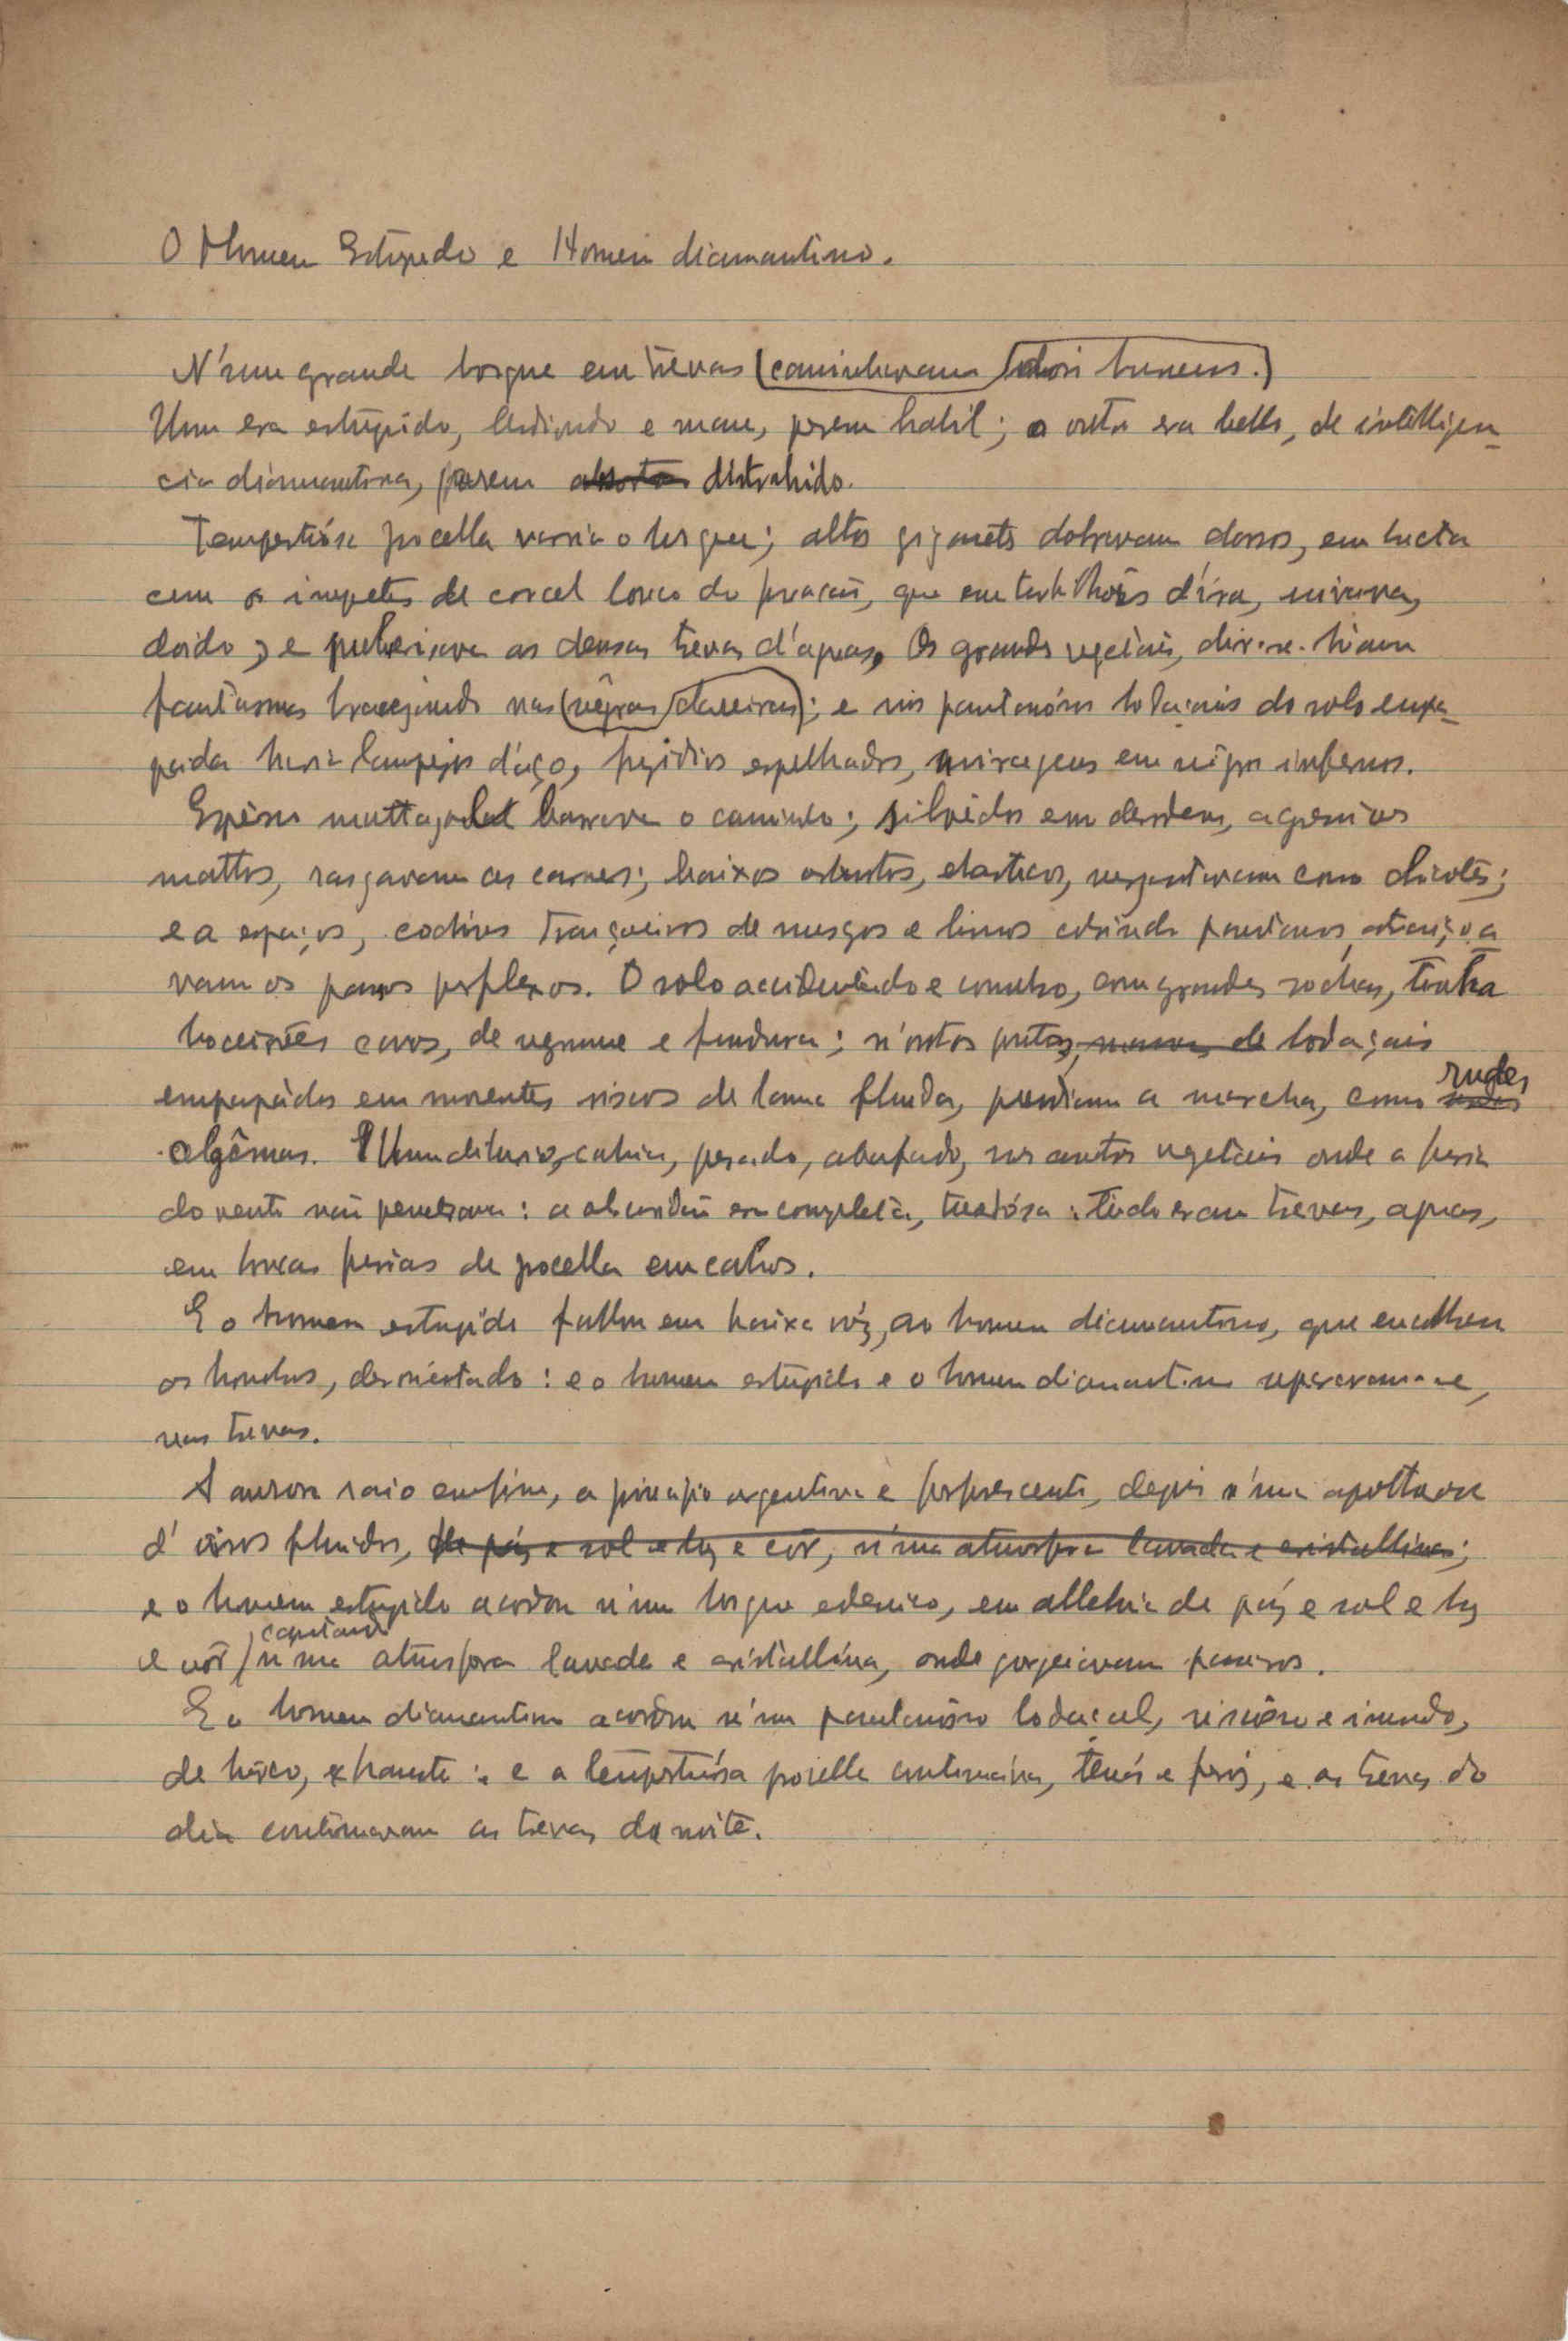 O Homem Estupido e Homem diamantino.
N'um grande bosque em trevas (caminhavam dois homens.)
Um era estupido, hediondo e mau, porem habil; o outro era bello, de intelligen-
cia diamantina, porem absorto distrahido.
Tempestuósa procella varria o bosque; altos gigantes dobravam dorsos, em lucta
com os impetos de corcel louco do furacão, que em turbilhões d'ira, uivava,
doido, e pulverisava as densas trevas d'aguas. Os grandes vegetáis, dir-se-hiam
fantasmas bracejando nas (négras clareiras); e nos pantanósos lodaçais do solo empa-
pado havia lampejos d'aço, fugidios espelhados, miragens em nigros infernos.
Espêsso mattagal barrava o caminho; silvêdos em desordem, agressivos
mattos, rasgavam as carnes; baixos arbustos, elasticos, vergastavam como chicotes;
e a espaços, traiçoeiros de musgos e limos cobrindo pantanos, atraiçoa
vam os passos perplexos. O solo accidentado e convulso, com grandes rochas, tinha
boqueirões cavos, de negrume e fundura; n'outros pontos, massas de lodaçais
empapádos em moventes viscos de lama fluida, prendiam a marcha, como rudes
algêmas. Um diluvio, cahia, pesado, abafado, nos antros vegetais onde a furia
do vento não penetrava: a escuridão era completa, tudo eram trevas, aguas,
em loucas furias de procella em cahos.
E o homem estupido fallou em baixa vóz, ao homem diamantino, que encolheu
os hombros, desorientado: e o homem estupido e o homem diamantino separaram-se,
nas trevas.
A aurora raiou emfim, a principio argentina e fosforescente, depois n'uma apotheose
d'oiros fluidos, de páz e sol e luz e côr, n'uma atmosfera lavada e cristallina;
e o homem estupido acordou n'um bosque edenico, em alleluia de páz e sol e luz
e côr, n'uma atmosfera lavada e cristallina, onde gorgeiavam passaros.
E o homem diamantino acordou n'um pantanôso lodaçal, viscôso e imundo,
de borco, exhausto: e a tempestuósa procella continuáva, tenás e feróz, e as trevas do
dia continuavam as trevas da noite.